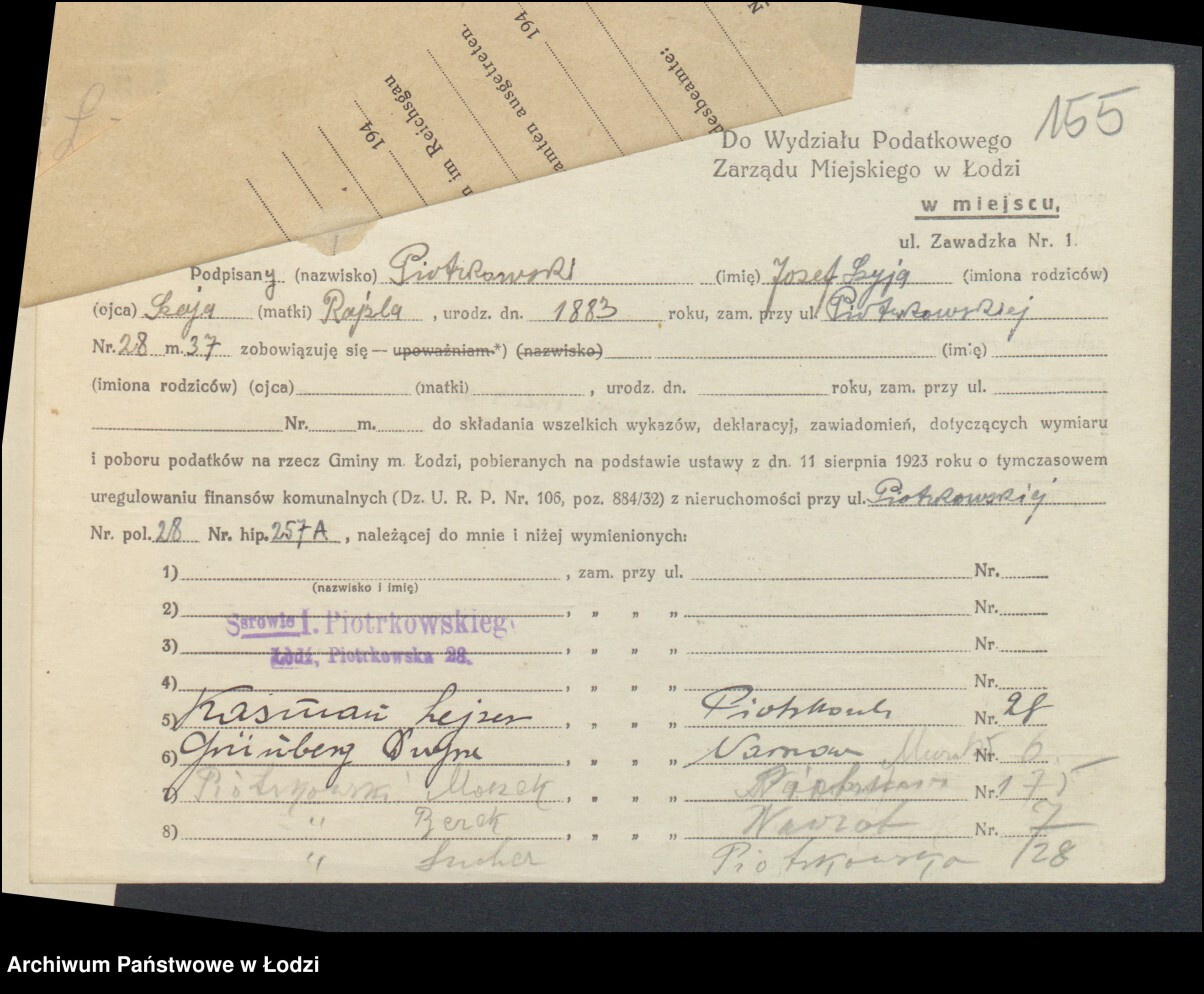 194
194
n im Reichsgau
amten ausgetreten.
desbeamte:
155
Do Wydziału Podatkowego
Zarządu Miejskiego w Łodzi
w miejscu,
ul. Zawadzka Nr. 1.
Podpisany (nazwisko) Piotrkowski (imię) Josef Szyja (imiona rodziców)
(ojca) Szaja (matki) Rajzla, urodz. dn. 1883 roku, zam. przy ul. Piotrkowskiej
Nr. 28 m. 37 zobowiązuję się — upoważniam*) (nazwisko) (imię)
(imiona rodziców) (ojca) (matki) , urodz. dn. roku, zam. przy ul.
Nr. m. do składania wszelkich wykazów, deklaracyj, zawiadomień, dotyczących wymiaru
i poboru podatków na rzecz Gminy m. Łodzi, pobieranych na podstawie ustawy z dn. 11 sierpnia 1923 roku o tymczasowem
uregulowaniu finansów komunalnych (Dz. U. R. P. Nr. 106, poz. 884/32) z nieruchomości przy ul. Piotrkowskiej
Nr. pol. 28 Nr. hip. 257A, należącej do mnie i niżej wymienionych:
1) , zam. przy ul. Nr.
(nazwisko i imię)
2) , „ „ „ Nr.
I. Piotrkowskieg
3) , „ „ „ Nr.
Łódź, Piotrkowska 28.
4) , „ „ „ Nr.
5) Kasman Lejzer , „ „ „ Nr. 28
6) Grünberg , „ „ „ Nr. 6
7) Piotrkowski Moszek , „ „ „ Nr. 175
8) " Berek , „ „ „ Nawrot Nr. 7
" Piotrkowska 28
Archiwum Państwowe w Łodzi